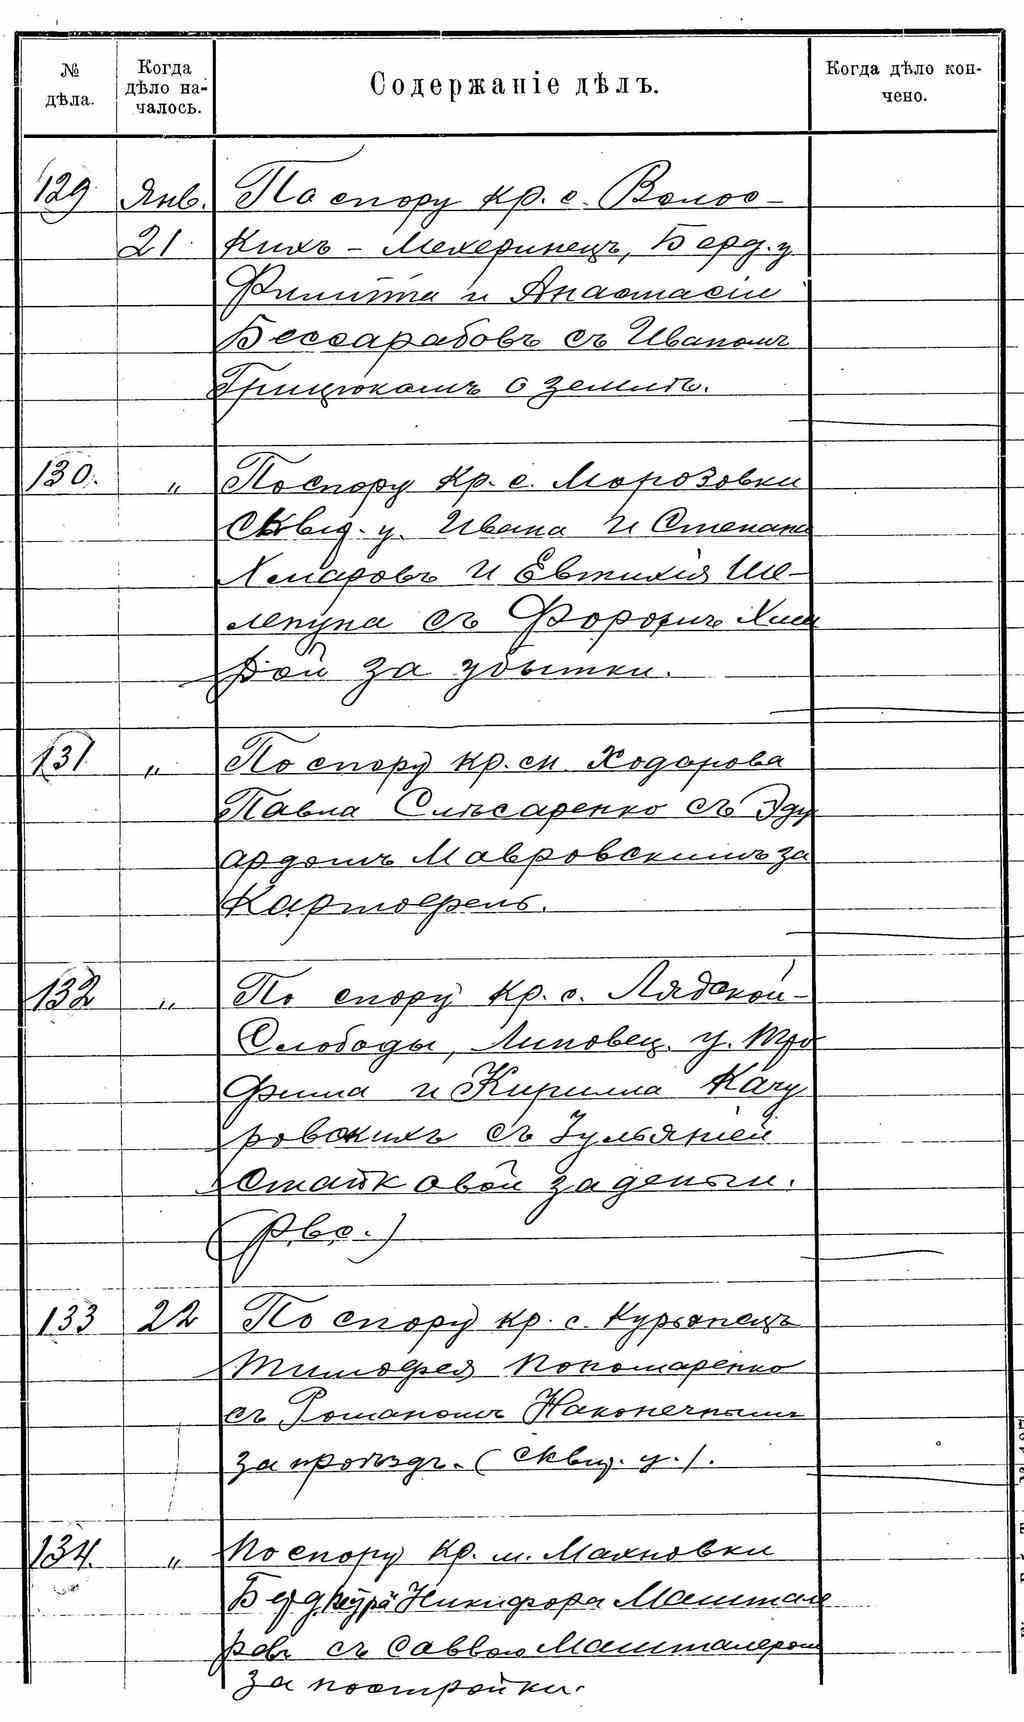 № дѣла.
Когда дѣло на-
чалось.
Содержаніе дѣлъ.
Когда дѣло кон-
чено.
129 Янв. По спору кр. с. Волос-
21 кихъ - Мехеринецъ, Берд. у.
Филиппа и Анастасіи
Бессарабовъ съ Иваномъ
Грицюкомъ о землѣ.
130. „ По спору кр. с. Морозовки
Сквир. у. Ивана и Степана
Хмаровъ и Евтихія Ше-
лепуна съ Федоромъ Хма
рой за убытки.
131 „ По спору кр. сл. Ходорова
Павла Слѣсаренко съ Эду
ардомъ Мавровскимъ за
картофель.
132 „ По спору кр. с. Лядской-
Слободы, Липовец. у. Тро
фима и Кирилла Качу
ровскихъ съ Іульяніей
Статковой за деньги.
133 22 По спору кр. с. Курьянецъ
Тимофея Пономаренко
съ Романомъ Наконечнымъ
за проѣздъ. (Сквир. у.).
134. „ По спору кр. м. Махновки
Берд. у. Никифора Машталѣ
ровъ съ Саввою Машталеромъ
за постройки.